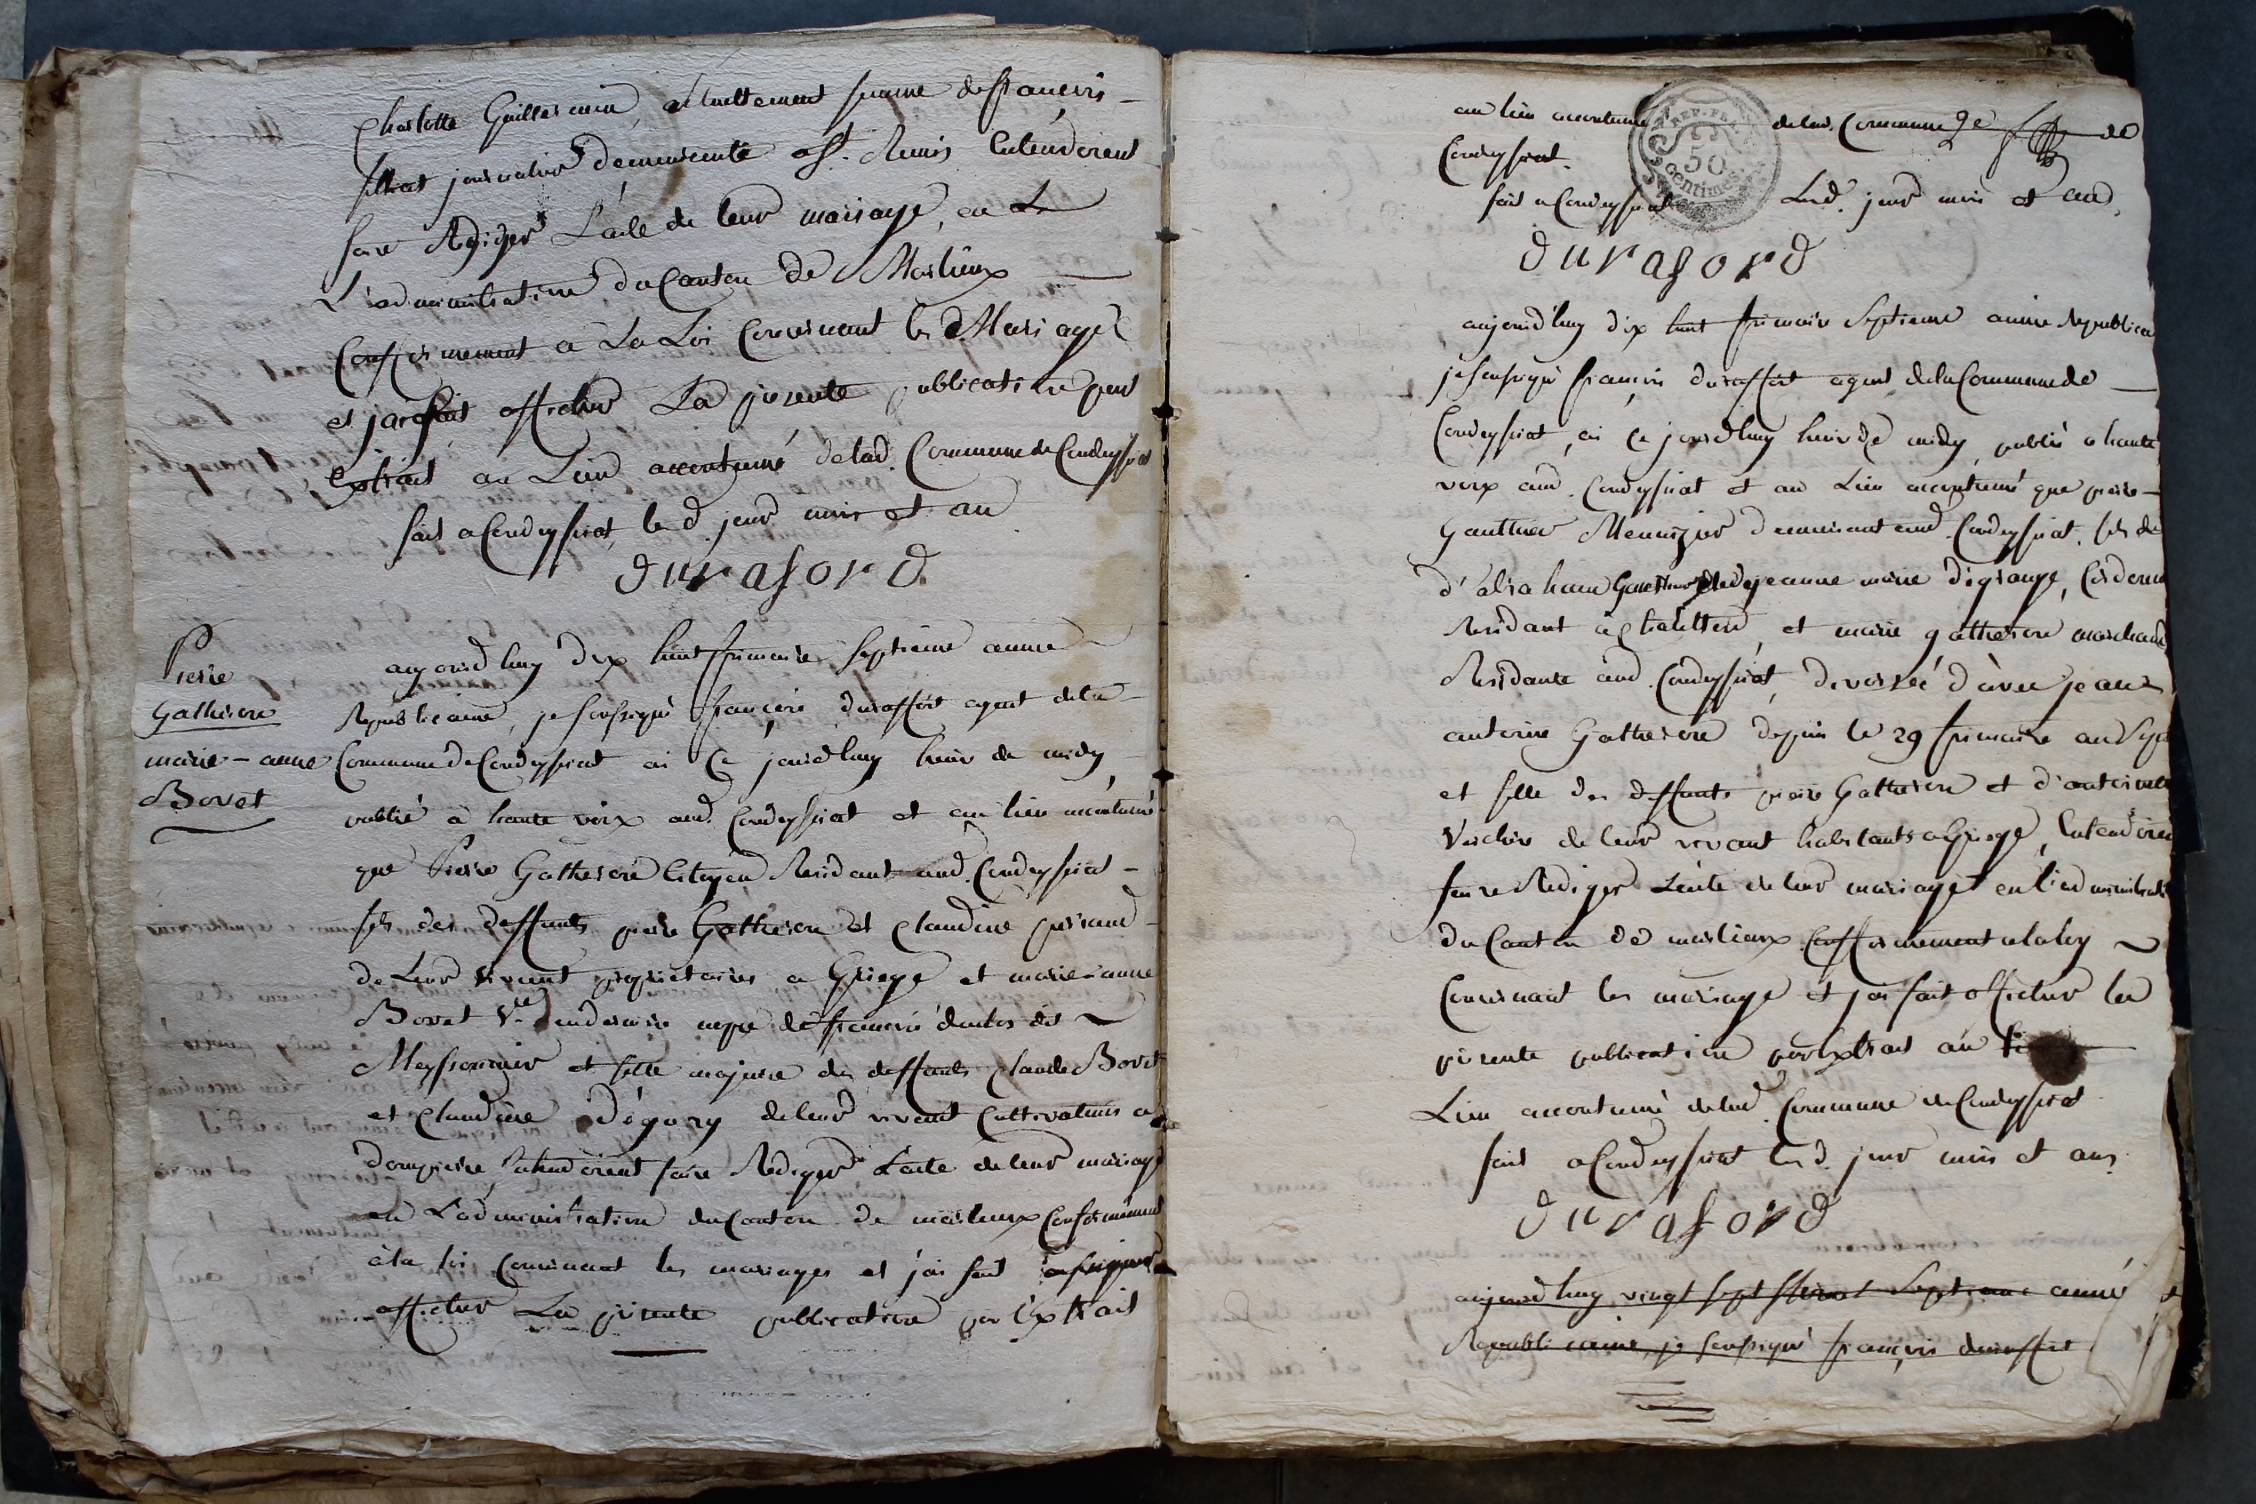 Charlotte Guillermin, actuellement femme de françois
fillliat journalier demeurante a St. Remis Entendoient
faire Rediger L'acte de leur mariage, en
L'administration du Canton de Marlieux
Confformement a La Loi Concernant les Mariages
et jar fait afficher La presente publication par
Extrait au Lieu accoutumé de lad. Commune de Condeyssiat
fait a Condeyssiat, led. jour mois et an
duraford
Pierre
Gatheron
marie-anne
Bovet
aujourd'huy dix huit frimaire Septieme année
Republicaine, je soussigné françois duraffort agent de la
Commune de Condeyssiat ai Ce jourd'huy heure de midy
publié a haute voix aud. Condeyssiat et au lieu accoutumé
que Pierre Gatheron Citoyen Residant aud. Condeyssiat
fils des deffunts pierre Gatheron et Claudine
de Leur vivant proprietaires a Griege et marie-anne
Bovet Ve en derniere nopce de françois dit
Meyssonnier et fille majeure des deffunts Claude Bovet
et Claudine Dégory de leur vivant Cultivateurs a
dompierre, Entendoient faire Rediger L'acte de leur mariage
en L'administration du Canton de marlieux Conformement
à la loi Concernant les mariages et j'ai fait
afficher La presente publication par Extrait
au lieu accoutumé de lad. Commune de
Condeyssiat.
REP. FRA.
50
centimes
fait a Condeyssiat Led. jour mois et an
duraford
aujourd'huy dix huit frimaire Septieme année Republica
je soussigné françois duraffort agent de la Commune de
Condeyssiat, ai Ce jourd'huy heure de midy, publié a haute
voix aud. Condeyssiat et au Lieu accoutumé que pierre
Gauthier Meunizier demeurant aud. Condeyssiat, fils de
d'abraham Gauthier jeanne marie degrange,
Residant à Chatillon, et marie gatheron marchande
Residante aud. Condeyssiat, divorcée d'avec jean
antoine Gatheron depuis le 29 frimaire an
et fille des deffunts pierre Gatheron et d'antoinette
Vercher de leur vivant habitants a Griege, Entendoient
faire Rediger L'acte de leur mariage en l'administrati
du Canton de marlieux Confformement a la loy
Concernant les mariage et j'ai fait afficher la
presente publication par Extrait au
Lieu accoutumé de lad. Commune de Condeyssiat
fait a Condeyssiat led. jour mois et an
duraford
aujourd'huy vingt sept Septieme année
Republicaine, je soussigné françois duraffort